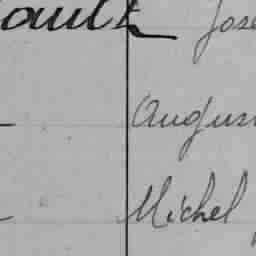 ault Jose
Augus
Michel